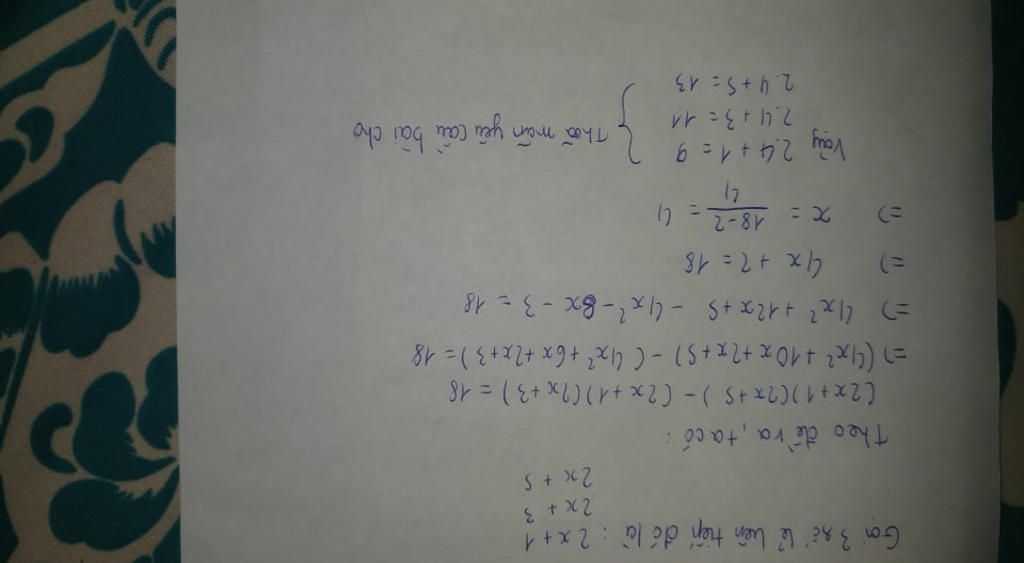 Gọi 3 số lẻ liên tiếp đó là : 2x + 1
2x + 3
2x + 5
Theo đề ra, ta có :
(2x+1)(2x+5) - (2x+1)(2x+3) = 18
=> (4x² + 10x + 2x + 5) - (4x² + 6x + 2x + 3) = 18
=> 4x² + 12x + 5 - 4x² - 8x - 3 = 18
=> 4x + 2 = 18
=> x = 18-2 / 4 = 4
Vậy 2.4 + 1 = 9
2.4 + 3 = 11 } Thoã mãn yêu cầu bài cho
2.4 + 5 = 13